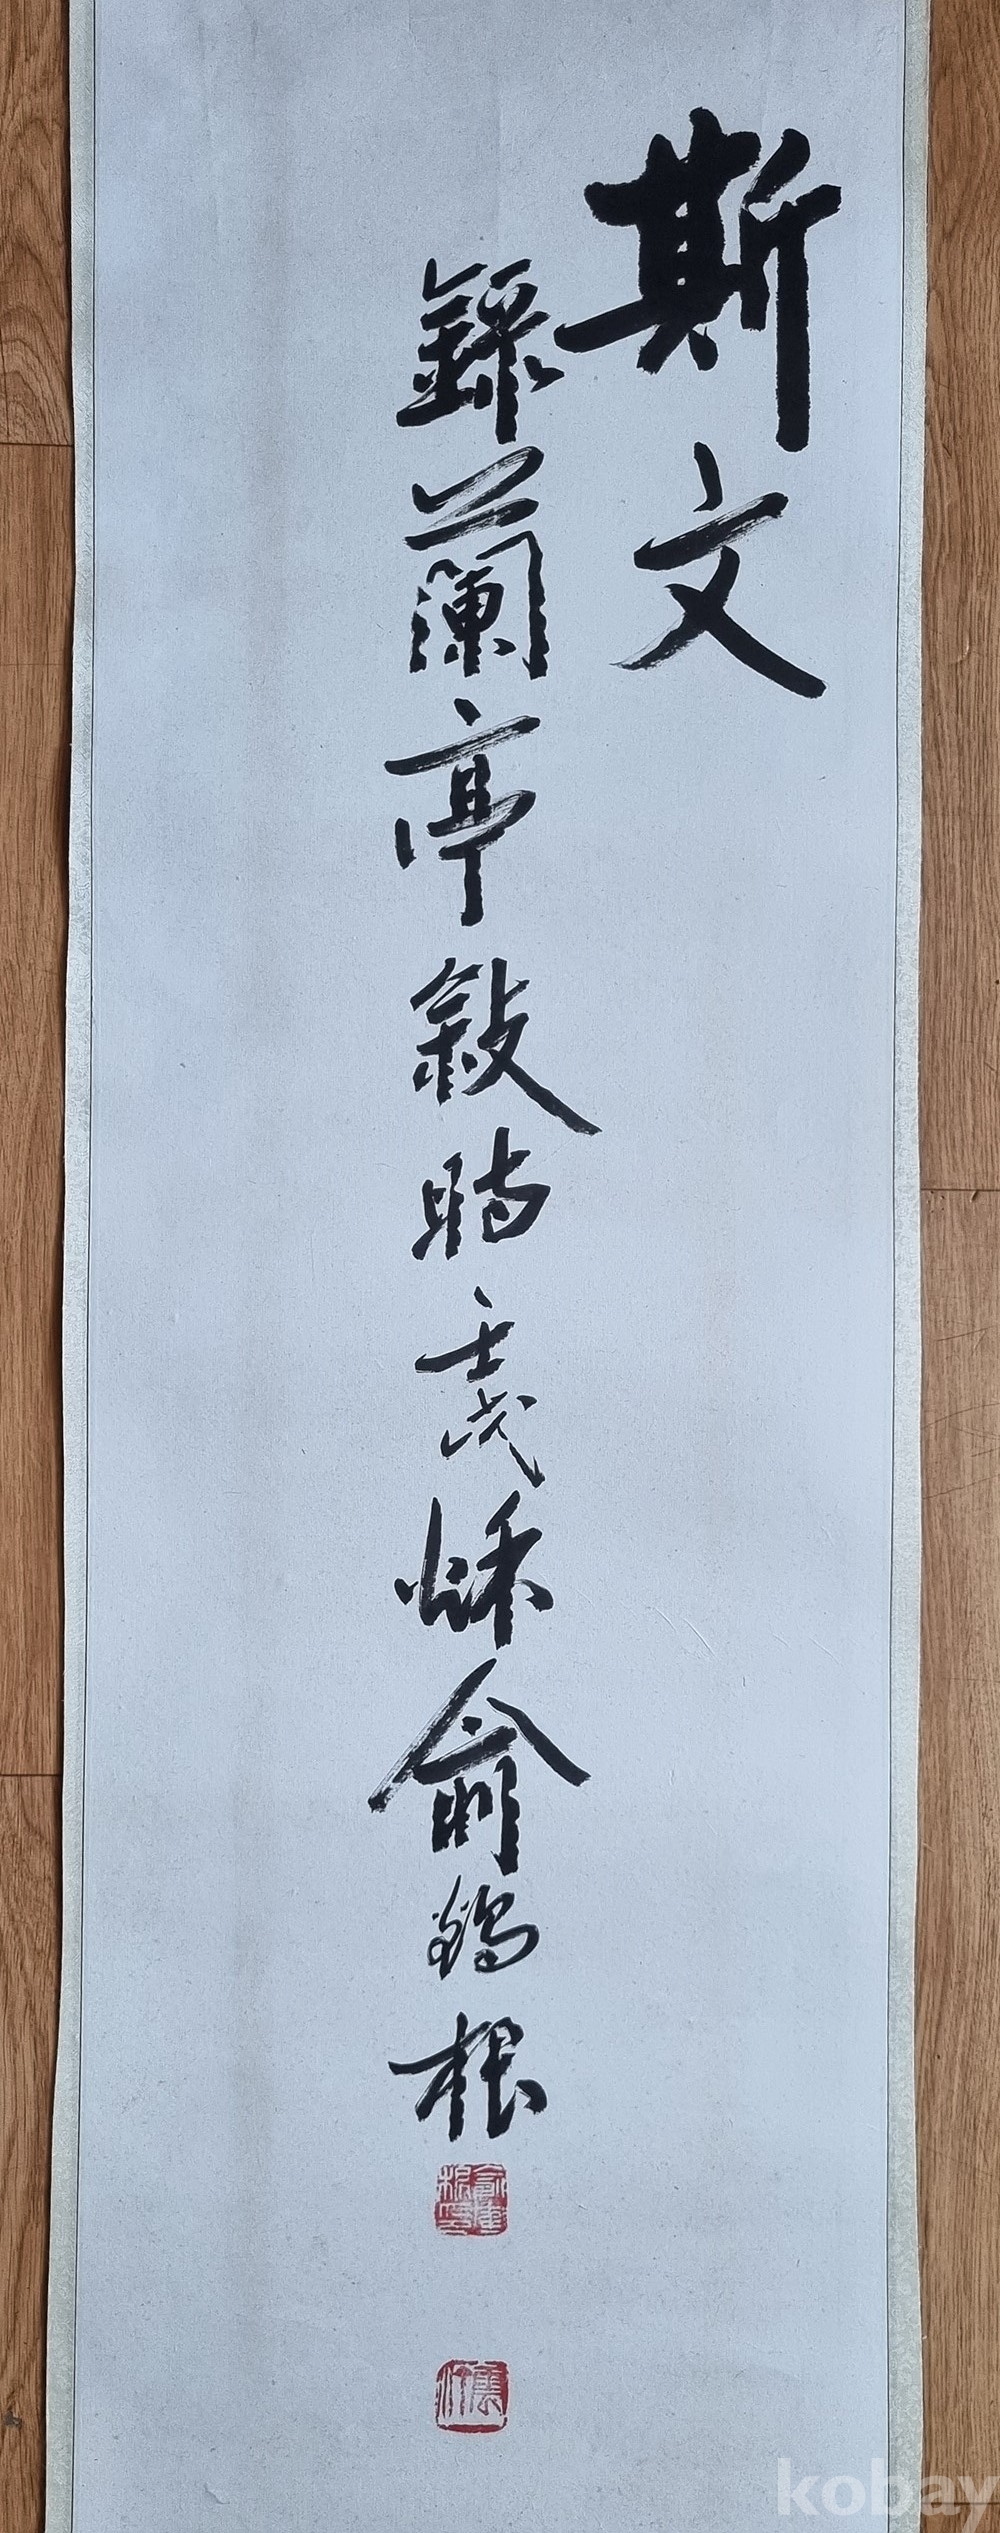 斯文
錄蘭亭敍時壬戌秌俞鶴根
kobay